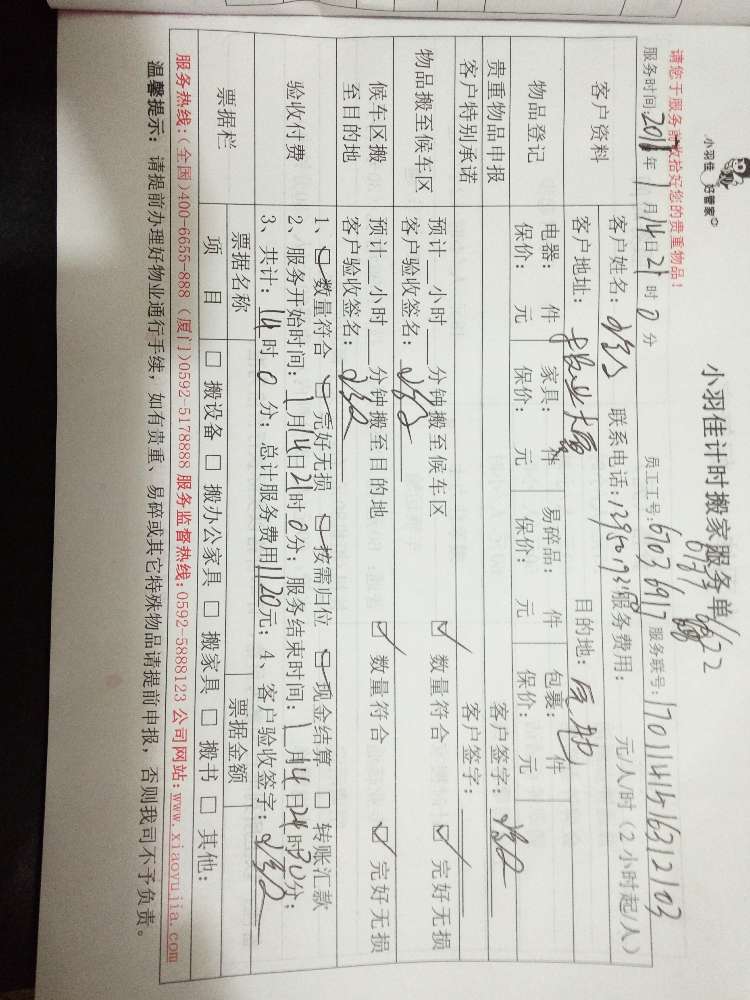 小羽佳 好管家
小羽佳计时搬家服务单
请您于服务前收拾好您的贵重物品！
员工工号：6703 6917 服务联号：
服务时间：2017年1月14日21时0分
客户资料
客户姓名： 联系电话： 服务费用： 元/人/时（2小时起/人）
客户地址： 目的地：
物品登记
电器： 件 家具： 件 易碎品： 件 包裹： 件
保价： 元 保价： 元 保价： 元 保价： 元
贵重物品申报 客户签字：
客户特别承诺 客户签字：
物品搬至候车区
预计__小时__分钟搬至候车区 ☑ 数量符合 ☑ 完好无损
客户验收签名：
候车区搬至目的地
预计__小时__分钟搬至目的地 ☑ 数量符合 ☑ 完好无损
客户验收签名：
验收付费
1、☑ 数量符合 ☑ 完好无损 ☑ 按需归位 ☑ 现金结算 □ 转账汇款
2、服务开始时间：1月14日21时0分；服务结束时间：1月14日24时30分；
3、共计：14时0分；总计服务费用1120元；4、客户验收签字：
票据栏
票据名称 票据金额
项目 □ 搬设备 □ 搬办公家具 □ 搬家具 □ 搬书 □ 其他：
服务热线：(全国)400-6655-888 (厦门)0592-5178888 服务监督热线：0592-5888123 公司网站：www.xiaoyujia.com
温馨提示： 请提前办理好物业通行手续，如有贵重、易碎或其它特殊物品请提前申报，否则我司不予负责。